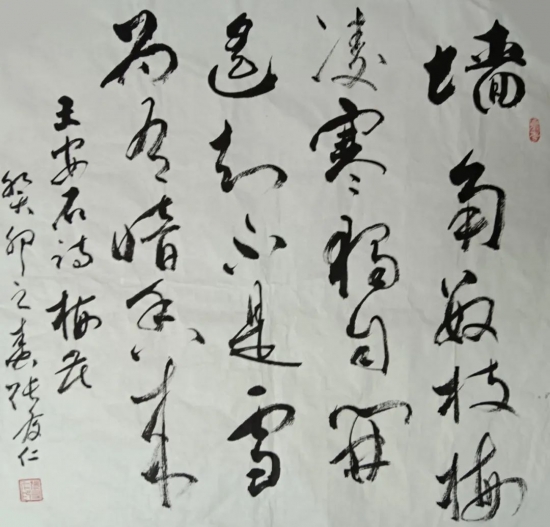 墙角数枝梅
凌寒独自開
遥知不是雪
为有暗香来
王安石诗梅花
癸卯之春张友仁